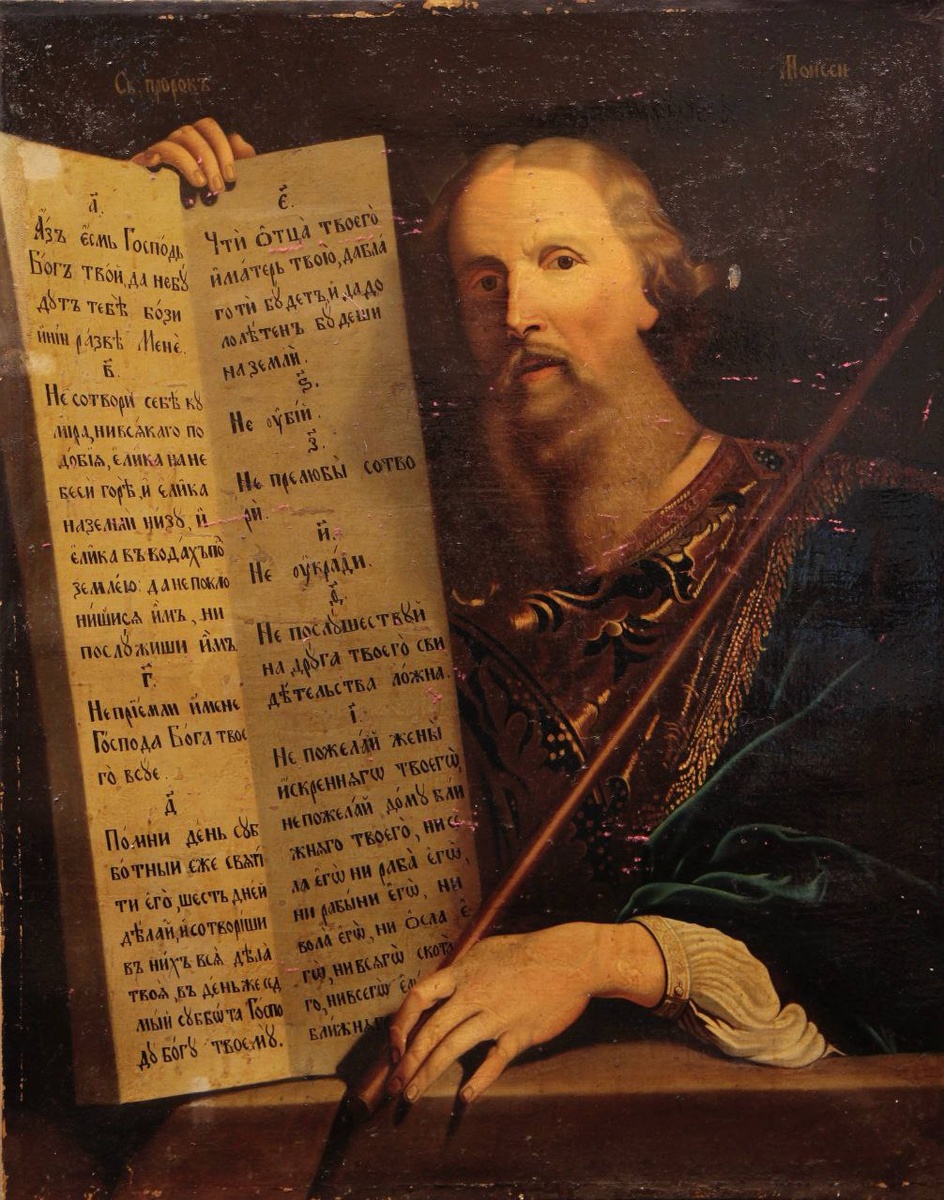 Св. пророкъ
Моисей
а҃.
А҆́зъ є҆́смь Госпо́дь
Бо́гъ тво́й, да небу́
дутъ тебѣ̀ бо́зи
и҆ні́и ра́звѣ Менѐ.
в҃.
Не сотворѝ себѣ̀ ку
мі́ра, нивсѧ́каго по
до́бїѧ, є҆ли́ка на не
бесѝ горѣ̀, и҆ є҆ли́ка
на землѝ ни́зу, и҆
є҆ли́ка въ вода́хъ по̀
земле́ю: да не покло
ни́шисѧ и҆̀мъ, ни
послу́жиши и҆̀мъ.
г҃.
Не прїе́мли и҆́мене
Го́спода Бо́га твое
гѡ̀ всу́е.
д҃
По́мни де́нь суб
бо́тный є҆́же свѧти́
ти є҆го̀, ше́сть дне́й
дѣ́лай, и҆ сотвори́ши
въ ни́хъ всѧ̑ дѣла̀
твоѧ̑, въ де́нь же сед
мы́й суббѡ́та Го́спо
ду Бо́гу твоему̀.
є҃.
Чтѝ Ѻ҆тца̀ твоего̀
и҆ ма́терь твою̀, да бла́
го тѝ бу́детъ, и҆ да до
лолѣ́тенъ бу́деши
на землѝ.
ѕ҃.
Не ᲂу҆бі́й.
з҃.
Не прелюбы̀ сотво
рѝ.
и҃.
Не ᲂу҆кра́ди.
ѳ҃.
Не послу́шествуй
на дру́га твоего̀ сви
дѣ́тельства ло́жна.
і҃.
Не пожела́й жены̀
и҆́скреннѧгѡ твоегѡ̀,
не пожела́й до́му бли́
жнѧго твоего̀, ни се
ла̀ є҆гѡ̀ ни раба̀ є҆гѡ̀,
ни рабы́ни є҆гѡ̀, ни
вола̀ є҆гѡ̀, ни Ѻ҆сла̀ є҆
гѡ̀, ни всѧ́гѡ скота̀
го, ни всегѡ̀